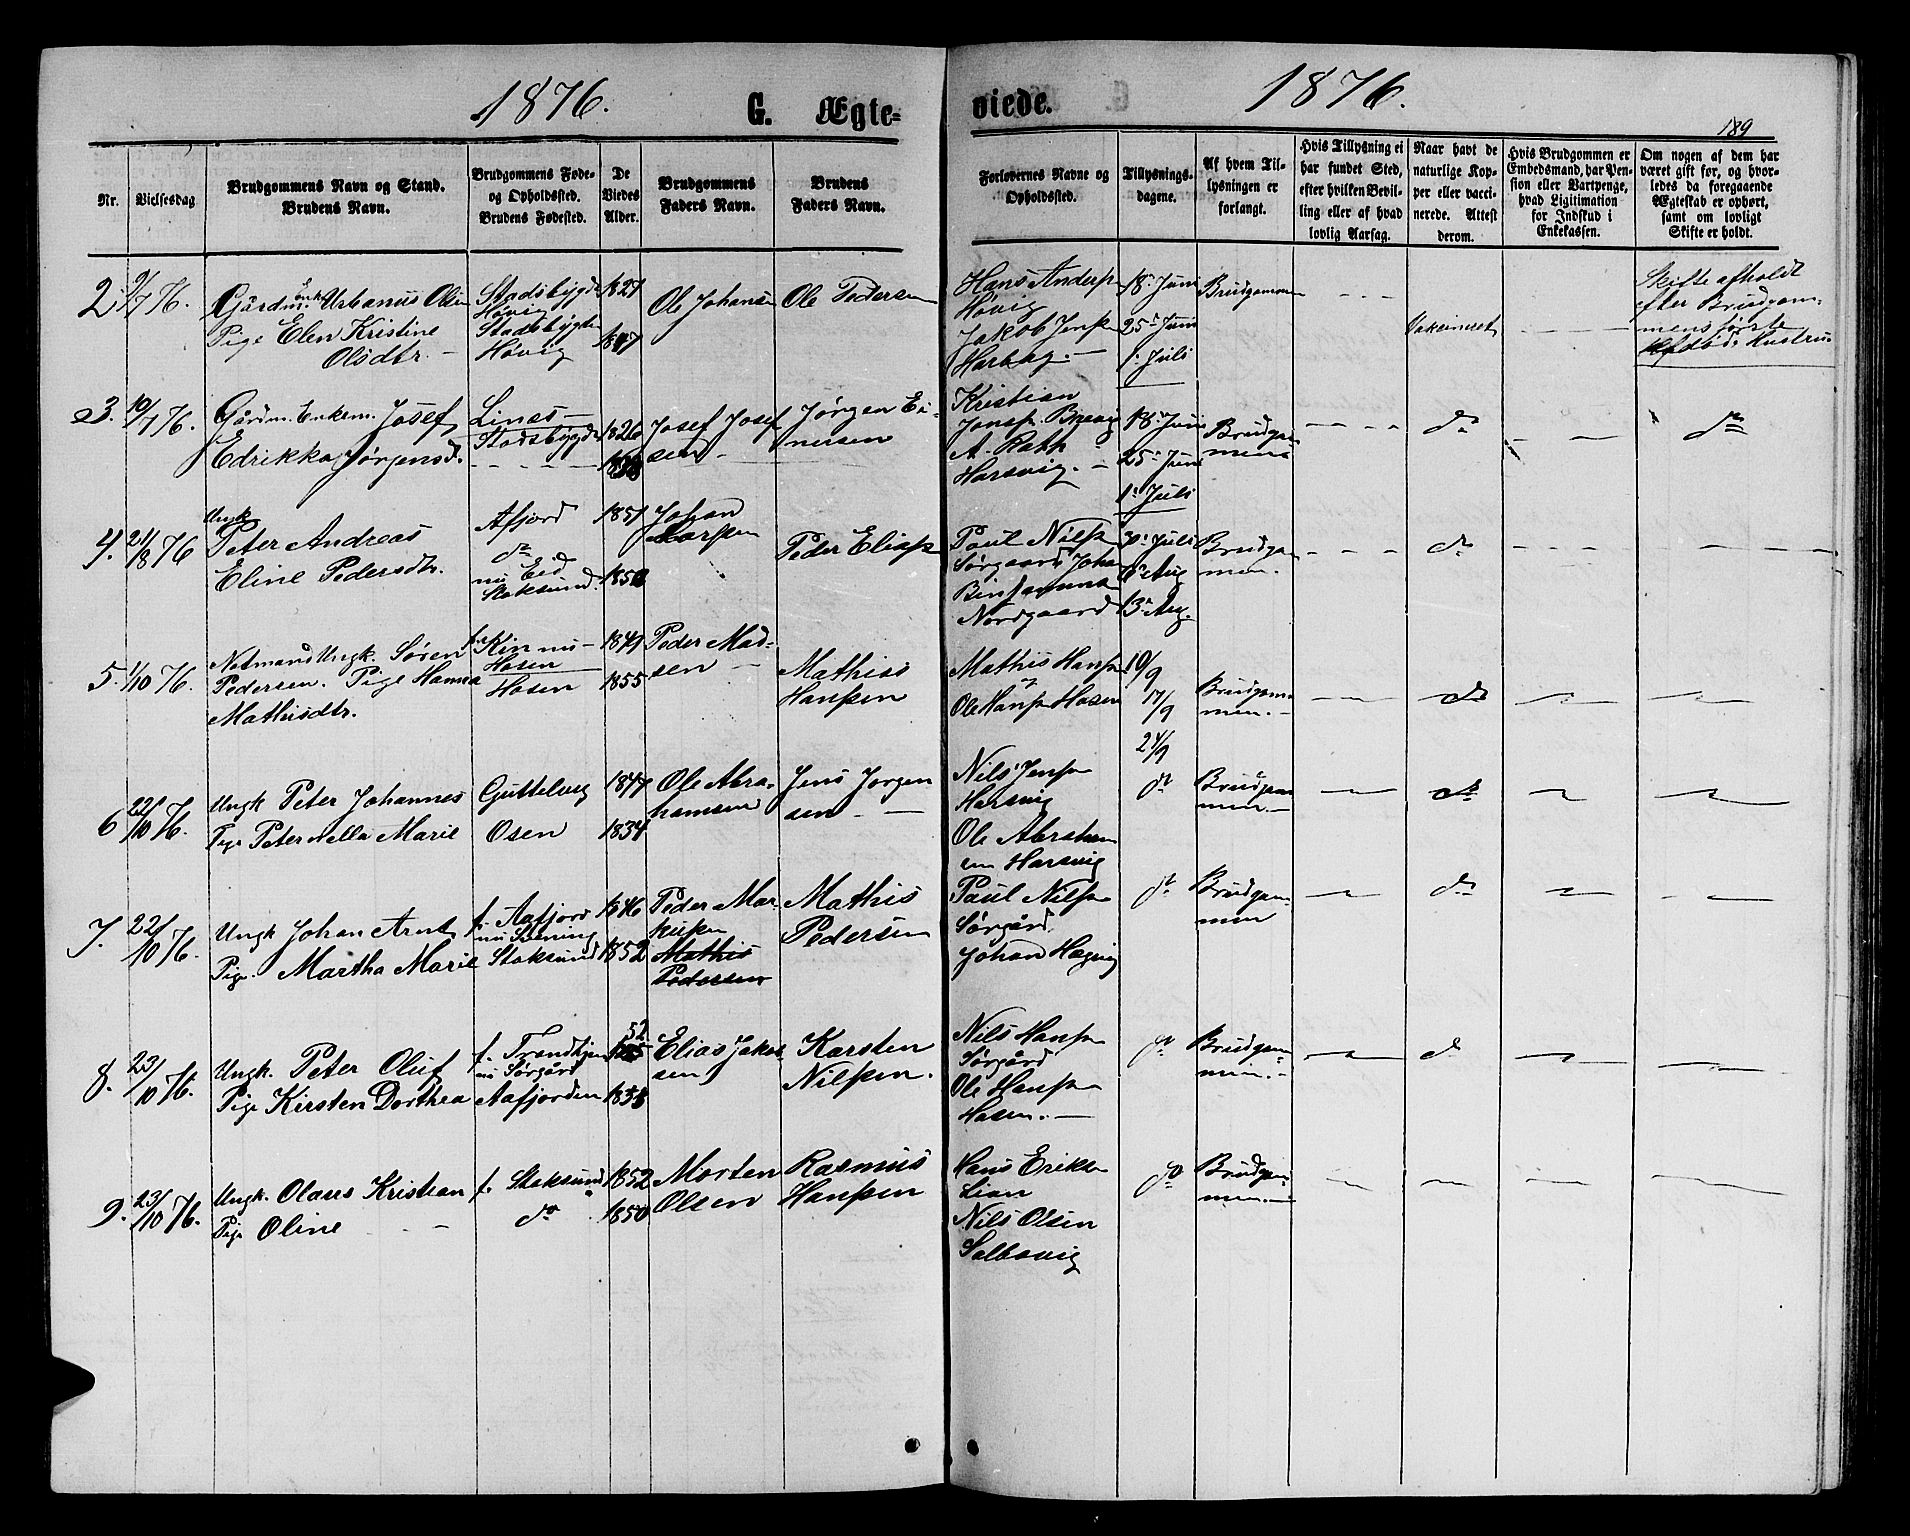 1876.
G. Ægte-
viede.
1876.
189
Nr.
Vielsesdag
Brudgommens Navn og Stand.
Brudens Navn.
Brudgommens Føde-
og Opholdssted.
Brudens Fødested.
De
Viedes
Alder.
Brudgommens
Faders Navn.
Brudens
Faders Navn.
Forlovernes Navne og
Opholdssted.
Tillysnings-
dagene.
Af hvem Til-
lysningen er
forlangt.
Hvis Tillysning ei
har fundet Sted,
efter hvilken Bevil-
ling eller af hvad
lovlig Aarsag.
Naar havt de
naturlige Kop-
per eller vacci-
nerede. Attest
derom.
Hvis Brudgommen er
Embedsmand, har Pen-
sion eller Vartpenge,
hvad Ligitimation
for Indskud i
Enkekassen.
Om nogen af dem har
været gift før, og hvor-
ledes da foregaaende
Ægteskab er ophørt,
samt om lovligt
Skifte er holdt.
2. 9/7 76.
Gårdm. Enk. Urbanus Olsen
Pige Elen Kristine
Olsdtr. —
Stadsbygde
Høvig
Stadsbygde
Høvig
1827
1847
Ole Johansen
Ole Pedersen
Hans Anders
Høvig
Jakob Jens
Harbag. —
18de Juni
25de Juni
1ste Juli
Brudgommen
Vakcineret
Skifte afholdt
efter Brudgom-
mens første
Hustru
3. 10/7 76.
Gårdm. Enkem. Josef
Edrikka Jørgensd.
Linæs —
Stadsbygde
1826
Josef Josef
sen —
Jørgen Ei-
nersen
Kristian
Jons. Brevig
A. Rath
Harsvig. —
18de Juni
25de Juni
1ste Juli
Brudgom-
mens
do
do
4. 21/8 76
Ungk.
Peter Andreas
Eline Pedersdtr.
Afjord
do
nu Eid
Stoksund.
1851
Johan
Larssen
Peder Elias
Paul Nils
Sørgaard Johan
Binjamins
Nordgaard
30te Juli
6te Aug
13de Aug.
Brudgom-
men.
do
5. 1/10 76.
Notmand Ungk. Søren
Pedersen. Pige Hanna
Mathisdtr.
Kin nu —
Hosen
Hosen
1849
1855
Peder Mad-
sen —
Mathias
Hanssen
Mathis Hans
Ole Hans Hosen
10/9
17/9
24/9
Brudgom-
men. —
do
6 22/10 76.
Ungk Peter Johannes
Pige Peternella Marie
Guttelvug
Osen
1847
1834
Ole Abra-
hamsen
Jens Jørgen
sen —
Nils Jens
Harsvig
Ole Abraham
sen Harsvig
do
Brudgom
men. —
do
7. 22/10 76.
Ungk Johan Arnt
Pige. Martha Marie
f. Aafjord
nu Sørening
Stoksund
1846
1852
Peder Mar-
kussen
Mathis
Pedersen
Mathis
Pedersen
Paul Nils
Sørgård
Johan Hagevig
do
Brudgom-
men
do
8. 23/10 76.
Ungk. Peter Oluf
Pige Kirsten Dorthea
f. Trondhjem
nu Sørgård
Aafjorden
52
Elias Jakob
sen
Karsten
Nilssen.
Nils Hans
Sørgård
Ole Hans
Hosen. —
do
Brudgom-
men. —
do
9. 23/10 76.
Ungk. Olaus Kristian
Pige Oline
f. Stoksund
do
1852
1850
Morten
Olsen
Rasmus
Hanssen
Hans Eriks
Lian
Nils Olsen
Salbovig
do
Brudgom
men. —